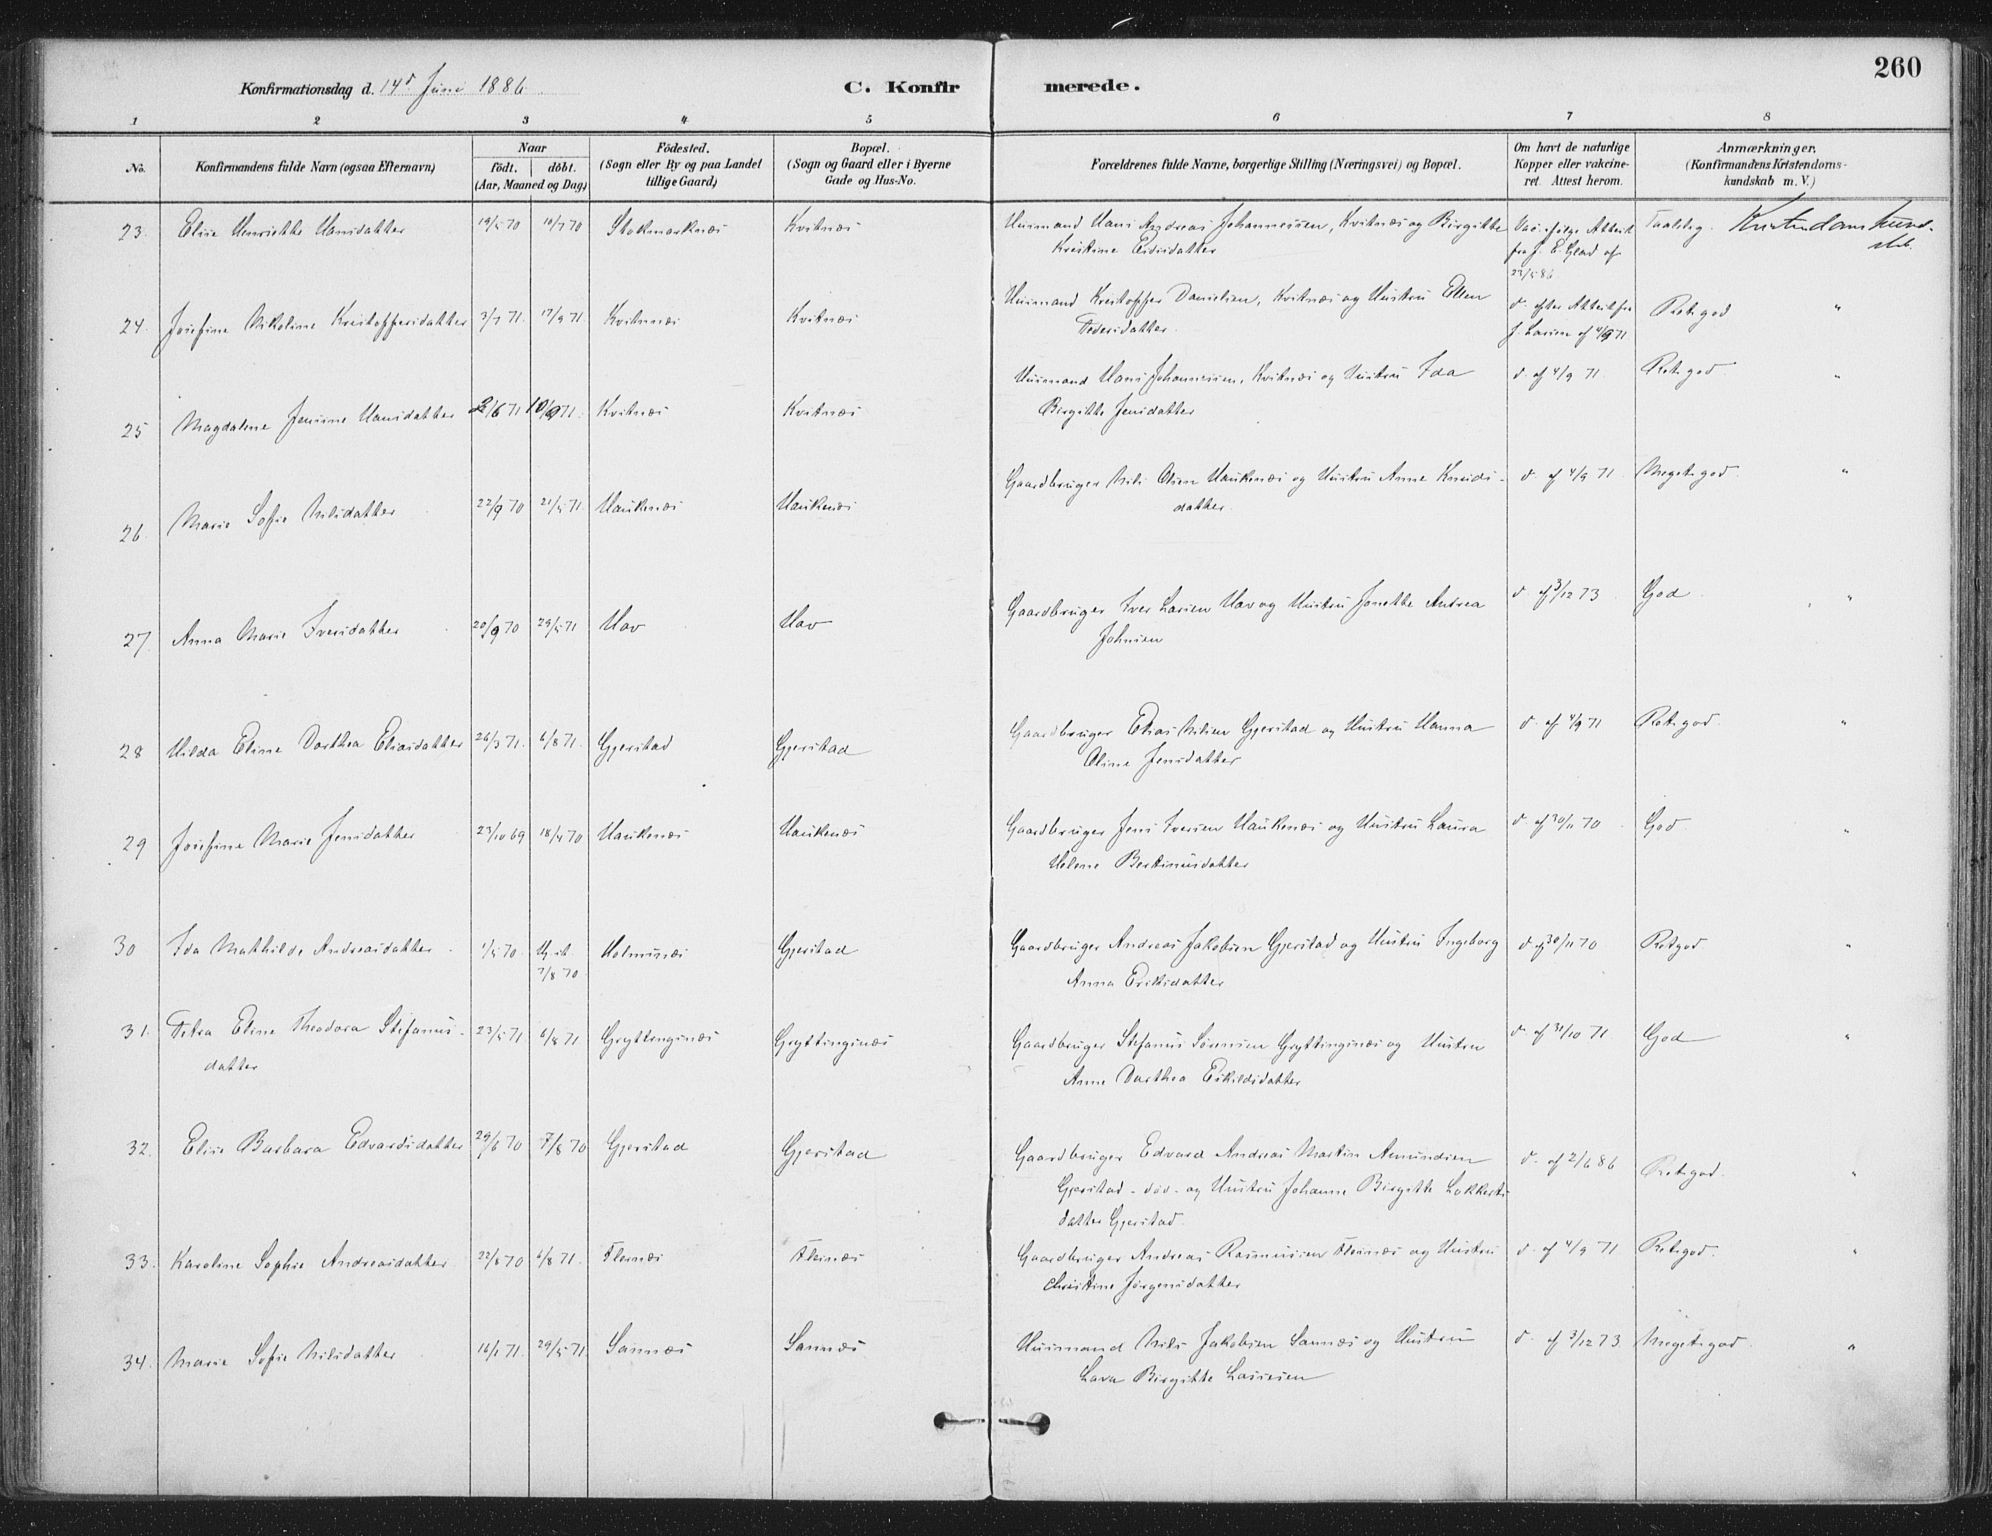 260
Konfirmationsdag d. 14d Juni 1886
C. Konfirmerede.
1 2 3 4 5 6 7 8
No. Konfirmandens fulde Navn (ogsaa Efternavn) Naar födt. döbt. (Aar, Maaned og Dag.) Födested. (Sogn eller By og paa Landet tillige Gaard.) Bopæl. (Sogn og Gaard eller i Byerne Gade og Hus-No. Forældrenes fulde Navne, borgerlige Stilling (Næringsvei) og Bopæl. Om havt de naturlige Kopper eller vakcineret. Attest herom. Anmærkninger. (Konfirmandens Kristendomskundskab m. V.)
23. Elise Henrikke Hansdatter 19/5 70 10/7 70 Stokmarknæs Kvitnæs Husmand Hans Andreas Johannessen, Kvitnæs og Birgitte Vac. ifølge Attest Taalelig. Kristendomskund-
Kristine Eidisdatter fra J. E. Glad af skab.
22/5 86
24. Josefine Nikoline Kristoffersdatter 3/7 71 17/9 71 Kvitnæs Kvitnæs Husmand Kristoffer Danielsen, Kvitnæs og Hustru Ellen d. efter Attest fra Retgod "
Pedersdatter. J. Larsen af 4/9 71
25 Magdalene Jensine Hansdatter 2/6 71 10/9 71. Kvitnæs Kvitnæs Husmand Hans Johannessen, Kvitnæs og Hustru Ida d. af 4/9 71. Retgod. "
Birgitte Jensdatter
26. Marie Sofie Nilsdatter 22/9 70 21/5 71 Haukenæs Haukenæs Gaardbruger Nils Olsen Haukenæs og Hustru Anne Knuds- d. af 4/9 71. Megetgod "
datter.
27. Anna Marie Iversdatter 20/9 70 29/5 71 Hav Hav Gaardbruger Iver Larsen Hav og Hustru Jonette Andrea d. af 3/12 73. God. "
Johnsen
28 Hilda Eline Dorthea Eliasdatter 26/3 71. 6/8 71. Gjerstad Gjerstad Gaardbruger Elias Nilsen Gjerstad og Hustru Hanna d. af 4/9 71 Retgod. "
Oline Jensdatter
29 Josefine Marie Jensdatter 23/10 69 18/4 70 Haukenæs Haukenæs Gaardbruger Jens Iversen Haukenæs og Hustru Laura d. af 30/11 70 God "
Helene Bertinusdatter
30 Ida Mathilde Andreasdatter 1/5 70. 7/8 70 Holmsnæs Gjerstad Gaardbruger Andreas Jakobsen Gjerstad og Hustru Ingeborg d. af 30/11 70 Retgod "
Anna Eriksdatter
31. Petra Eline Theodora Stefanus- 23/5 71 6/8 71 Gryttingnæs Gryttingnæs Gaardbruger Stefanus Sörensen Gryttingnæs og Hustru d. af 31/10 71. God "
datter Anne Dorthea Eskildsdatter
32. Elise Barbara Edvardsdatter 29/6 70 7/8 70 Gjerstad Gjerstad Gaardbruger Edvard Andreas Martin Amundsen d. af 2/6 86 Retgod. "
Gjerstad - död - og Hustru Johanne Birgitte Lokkerts
datter Gjerstad.
33. Karoline Sophie Andreasdatter 22/8 70 6/8 71. Flesnæs Flesnæs Gaardbruger Andreas Rasmussen Flesnæs og Hustru d. af 4/9 71 Retgod. "
Christine Jørgensdatter
34. Marie Sofie Nilsdatter 16/1 71. 29/5 71. Sannæs Sannæs Husmand Nils Jakobsen Sannæs og Hustru d. af 3/12 73 Megetgod. "
Lava Birgitte Lassesen